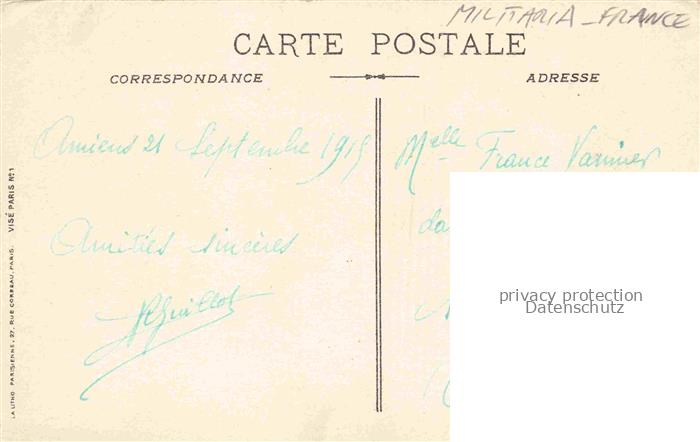 MILITARIA - FRANCE
CARTE POSTALE
CORRESPONDANCE
ADRESSE
Amiens 21 Septembre 1915
Amitiés sincères
Guillot
Melle France
da
privacy protection
Datenschutz
LA LITHO PARISIENNE, 27, RUE CORBEAU, PARIS. VISÉ PARIS No 1